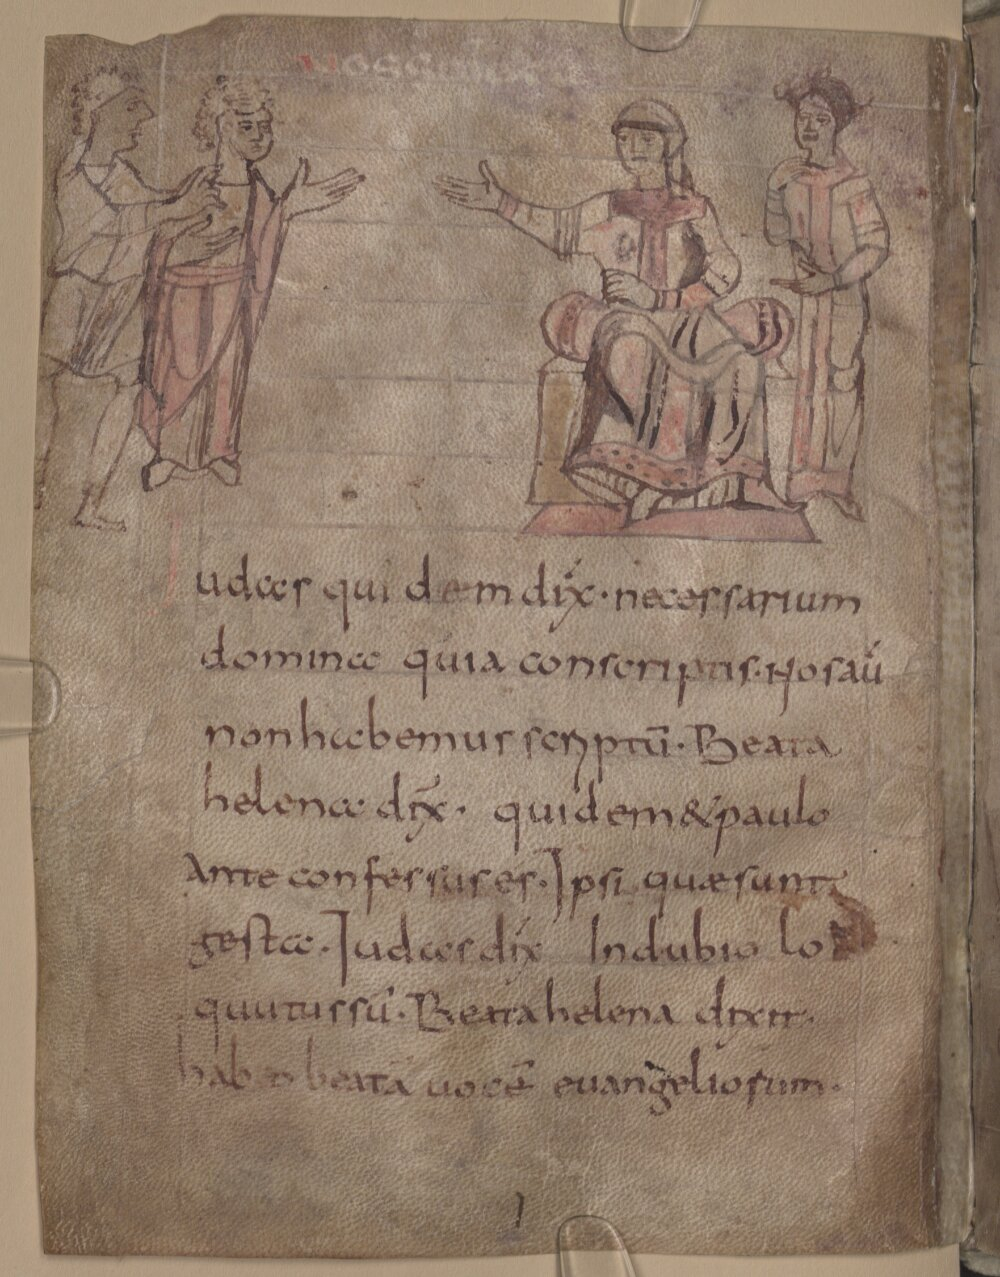 udas quidem dix̄· necessarium
domine quia conscriptis· Nos aū
non habemus scriptū· Beata
helena dix̄· quidem & paulo
Ante confessus es· Ipsi quæ sunt
gesta· Iudas dix̄ In dubio lo
quutus sū· Beata helena dixit·
hab beatā uocē euangeliorum·
I